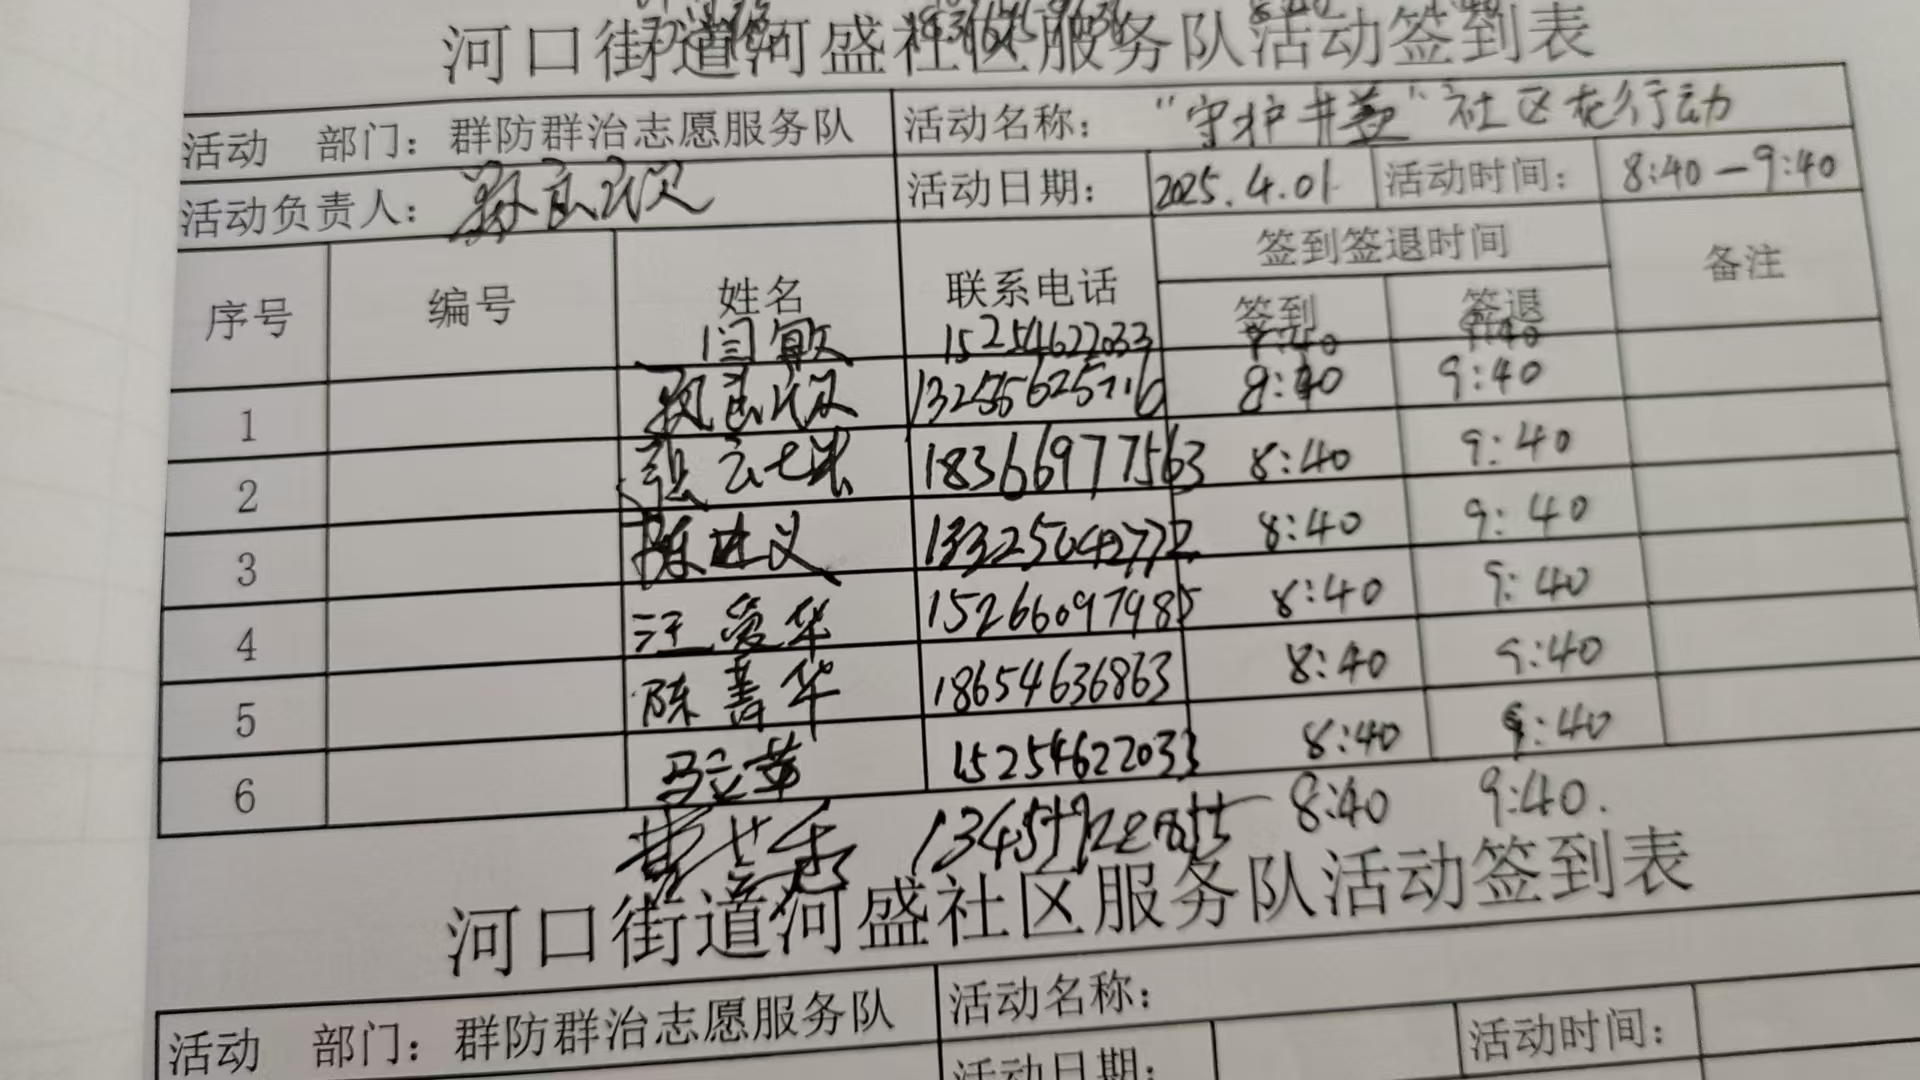 河口街道河盛社区服务队活动签到表
活动 部门：群防群治志愿服务队 活动名称： "守护井盖"社区在行动
活动负责人： 活动日期： 2025.4.01 活动时间： 8:40－9:40
序号 编号 姓名 联系电话 签到签退时间 备注
签到 签退
闫敏 15254622033 9:40
1 13255625716 8:40 9:40
2 18366977563 8:40 9:40
3 陈进义 13325042772 8:40 9:40
4 汪爱华 15266097985 8:40 9:40
5 陈菁华 18654636863 8:40 9:40
6 马立英 15254622033 8:40 9:40
8:40 9:40.
河口街道河盛社区服务队活动签到表
活动 部门：群防群治志愿服务队 活动名称：
活动日期： 活动时间：